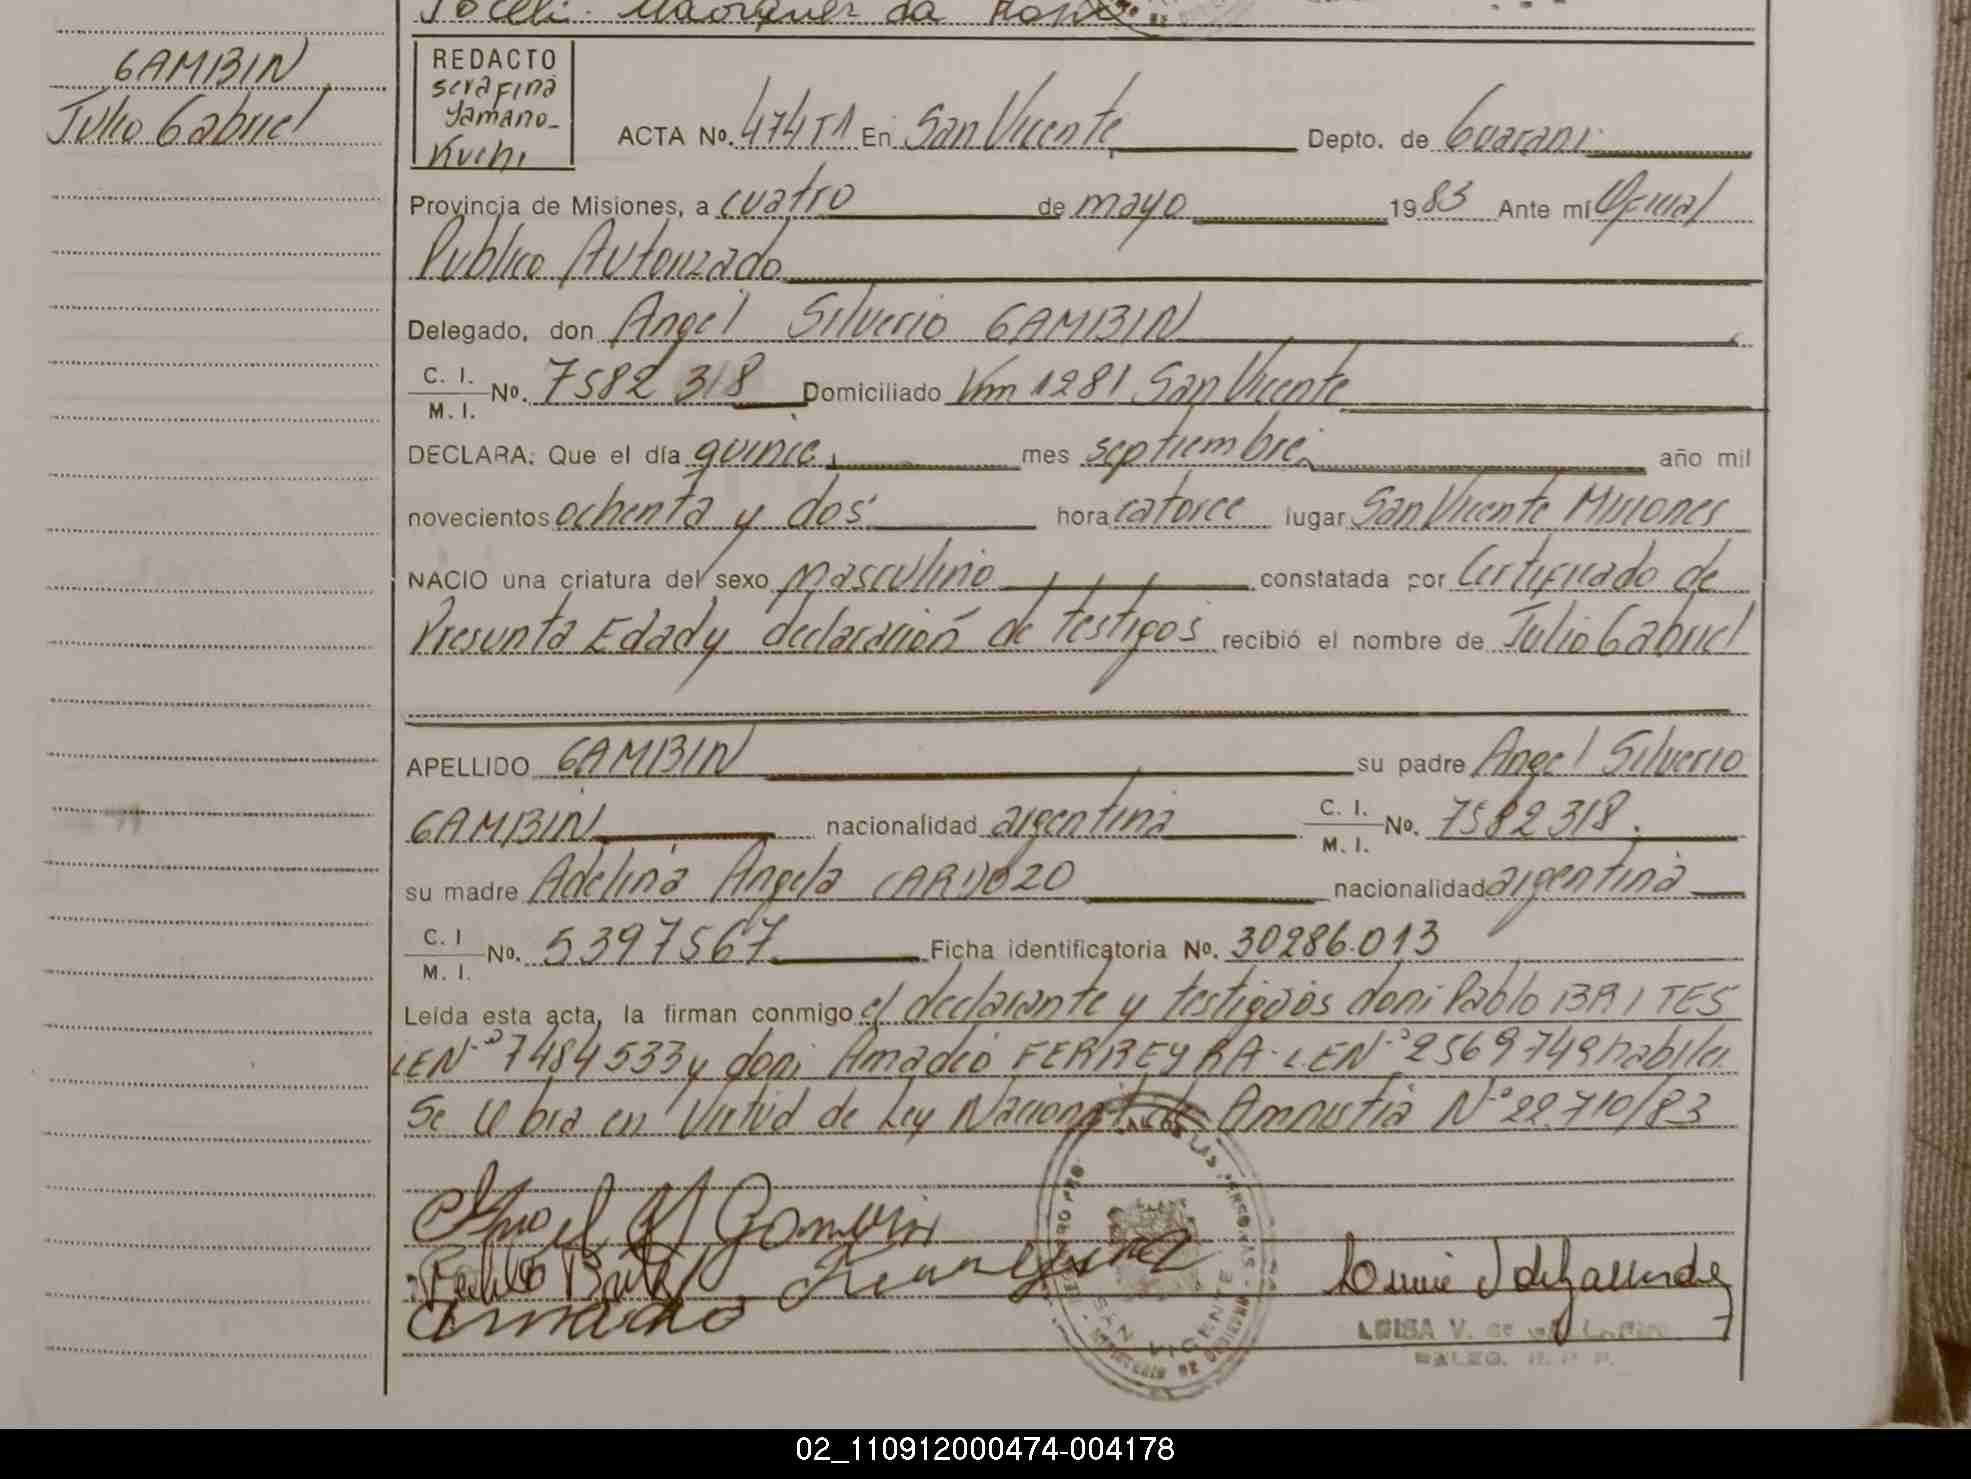 GAMBIN
Julio Gabriel
REDACTO
Serafina
Yamano-
Kuchi
ACTA No. 474 T1 En San Vicente Depto. de Guarani
Provincia de Misiones, a cuatro de mayo 1983 Ante mí Oficial
Publico Autorizado
Delegado, don Angel Silverio GAMBIN
C. I.
M. I. No. 7582318 Domiciliado Km 1281 San Vicente
DECLARA: Que el día quince mes septiembre año mil
novecientos ochenta y dos hora catorce lugar San Vicente Misiones
NACIO una criatura del sexo masculino constatada por Certificado de
Presunta Edad y declaración de testigos recibió el nombre de Julio Gabriel
APELLIDO GAMBIN su padre Angel Silverio
GAMBIN nacionalidad argentina C. I.
M. I. No. 7582318.
su madre Adelina Angela CARDOZO nacionalidad argentina
C. I
M. I. No. 5397567 Ficha identificatoria No. 30286.013
Leída esta acta, la firman conmigo el declarante y testigos don: Pablo BRITES
LEN° 7484533 y don: Amadeo FERREYRA- LEN° 2569749 habiles
Se labra en Virtud de Ley Nacional de Amnistia N° 22.710/83
Angel Gambin
Pablo Brites
Amadeo
SAN VICENTE
LUISA V. de
02_110912000474-004178